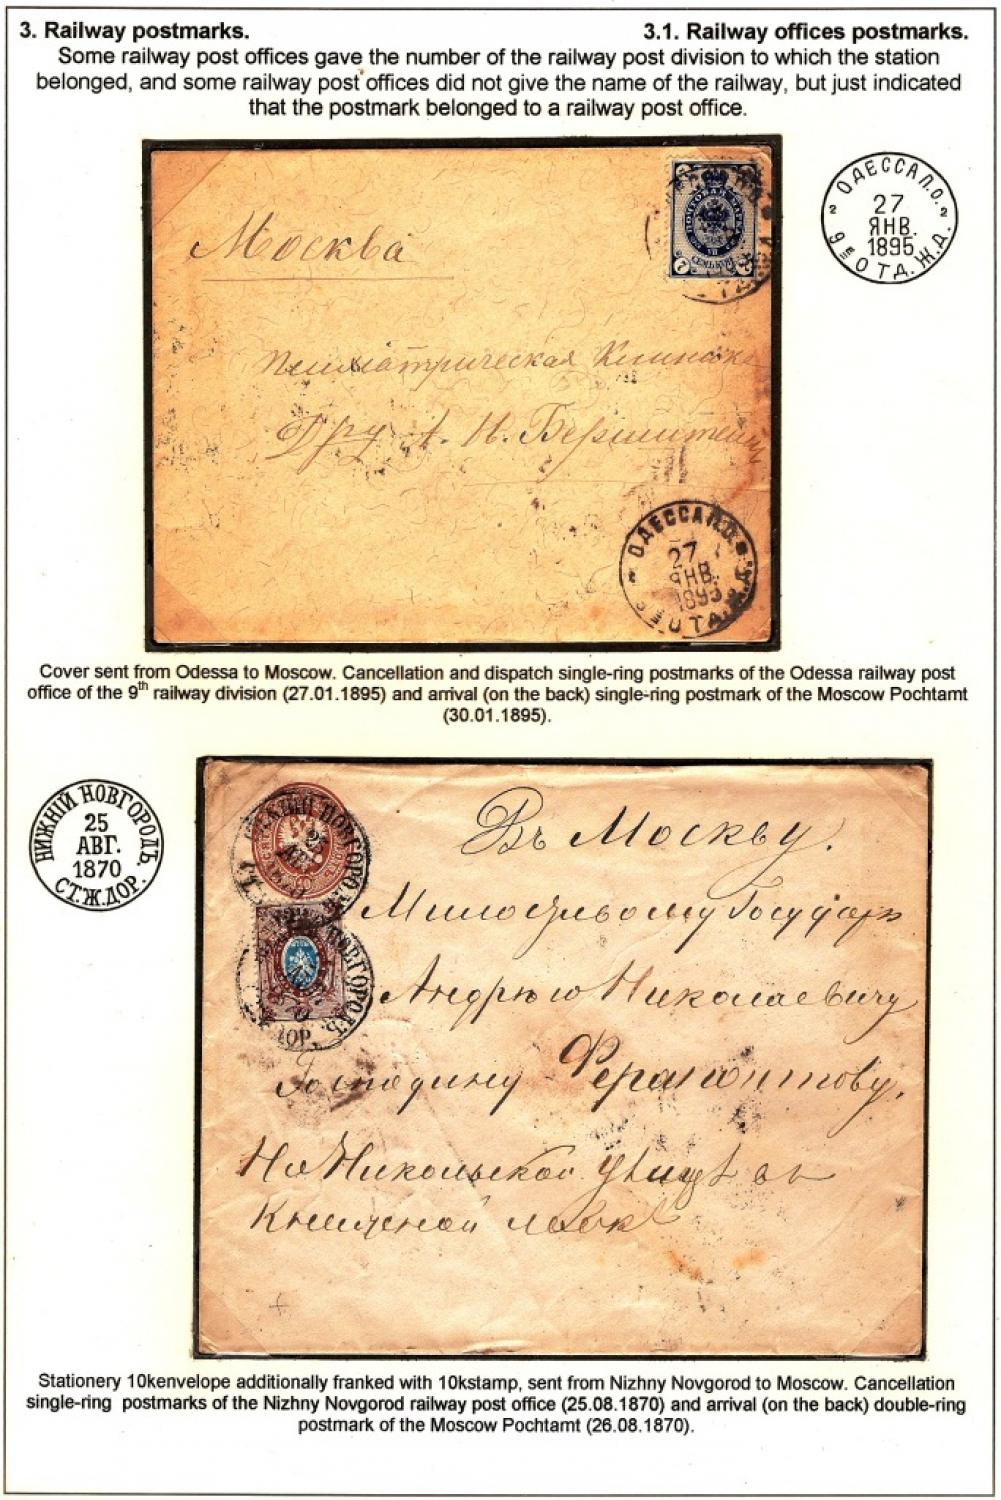 3. Railway postmarks. 3.1. Railway offices postmarks.
Some railway post offices gave the number of the railway post division to which the station
belonged, and some railway post offices did not give the name of the railway, but just indicated
that the postmark belonged to a railway post office.
Москва
ПОЧТОВАЯ МАРКА
СЕМЬ КОП.
7 7
ОДЕССА П.О.
2 27 2
ЯНВ.
1895
9 ОТД. Ж. Д.
Психіатрическая Клиника
Д-ру А. Н. Бернштейнъ
ОДЕССА П.О.
27
ЯНВ.
1895
ОТД. Ж. Д.
Cover sent from Odessa to Moscow. Cancellation and dispatch single-ring postmarks of the Odessa railway post
office of the 9th railway division (27.01.1895) and arrival (on the back) single-ring postmark of the Moscow Pochtamt
(30.01.1895).
НИЖНІЙ НОВГОРОДЪ.
25
АВГ.
1870
СТ. Ж. ДОР.
НОВГОРОДЪ
НОВГОРОДЪ.
ДОР.
Въ Москву.
Милостивому Государю
Андрею Николаевичу
Господину Ферапонтову,
На Никольской улицѣ въ
Книжной лавкѣ
Stationery 10kenvelope additionally franked with 10kstamp, sent from Nizhny Novgorod to Moscow. Cancellation
single-ring postmarks of the Nizhny Novgorod railway post office (25.08.1870) and arrival (on the back) double-ring
postmark of the Moscow Pochtamt (26.08.1870).